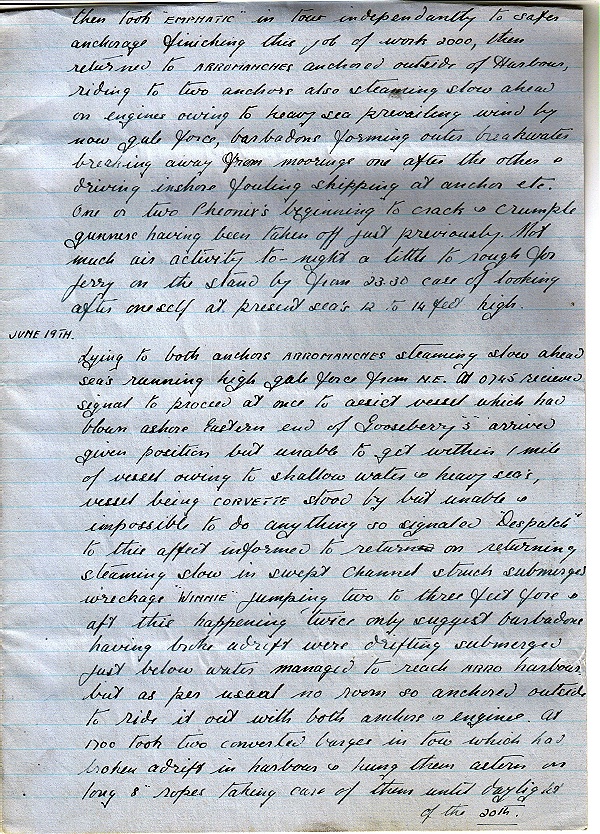 then took "EMPHATIC" in tow independantly to safer
anchorage finiching this job of work 2000, then
returned to ARROMANCHES anchored outside of Harbour,
riding to two anchors also steaming slow ahead
on engines owing to heavy sea prevailing wind by
now gale force, barbadons forming outer breakwater
breaking away from moorings one after the other &
driving inshore fouling shipping at anchor etc.
One or two Pheonix's beginning to crack & crumple
gunners having been taken off just previously. Not
much air activity to-night a little to rough for
jerry on the stand by from 23.30 case of looking
after oneself at present sea's 12 to 14 feet high.
JUNE 19TH.
Lying to both anchors ARROMANCHES steaming slow ahead
sea's running high gale force from N.E. At 0745 recieved
signal to proceed at once to assist vessel which had
blown ashore Eastern end of Gooseberry 3 arrived
given position but unable to get within 1 mile
of vessel owing to shallow water & heavy sea's,
vessel being CORVETTE stood by but unable &
impossible to do anything so signaled "Despatch"
to this affect informed to return on returning
steaming slow in swept channel struck submerged
wreckage "WINNIE" jumping two to three feet fore &
aft this happening twice only suggest barbadons
having broke adrift were drifting submerged
just below water managed to reach ARRO harbour
but as per usual no room so anchored outside
to ride it out with both anchors & engines. At
1700 took two converted barges in tow which had
broken adrift in harbour & hung them astern on
long 8" ropes taking care of them until daylight
of the 20th.